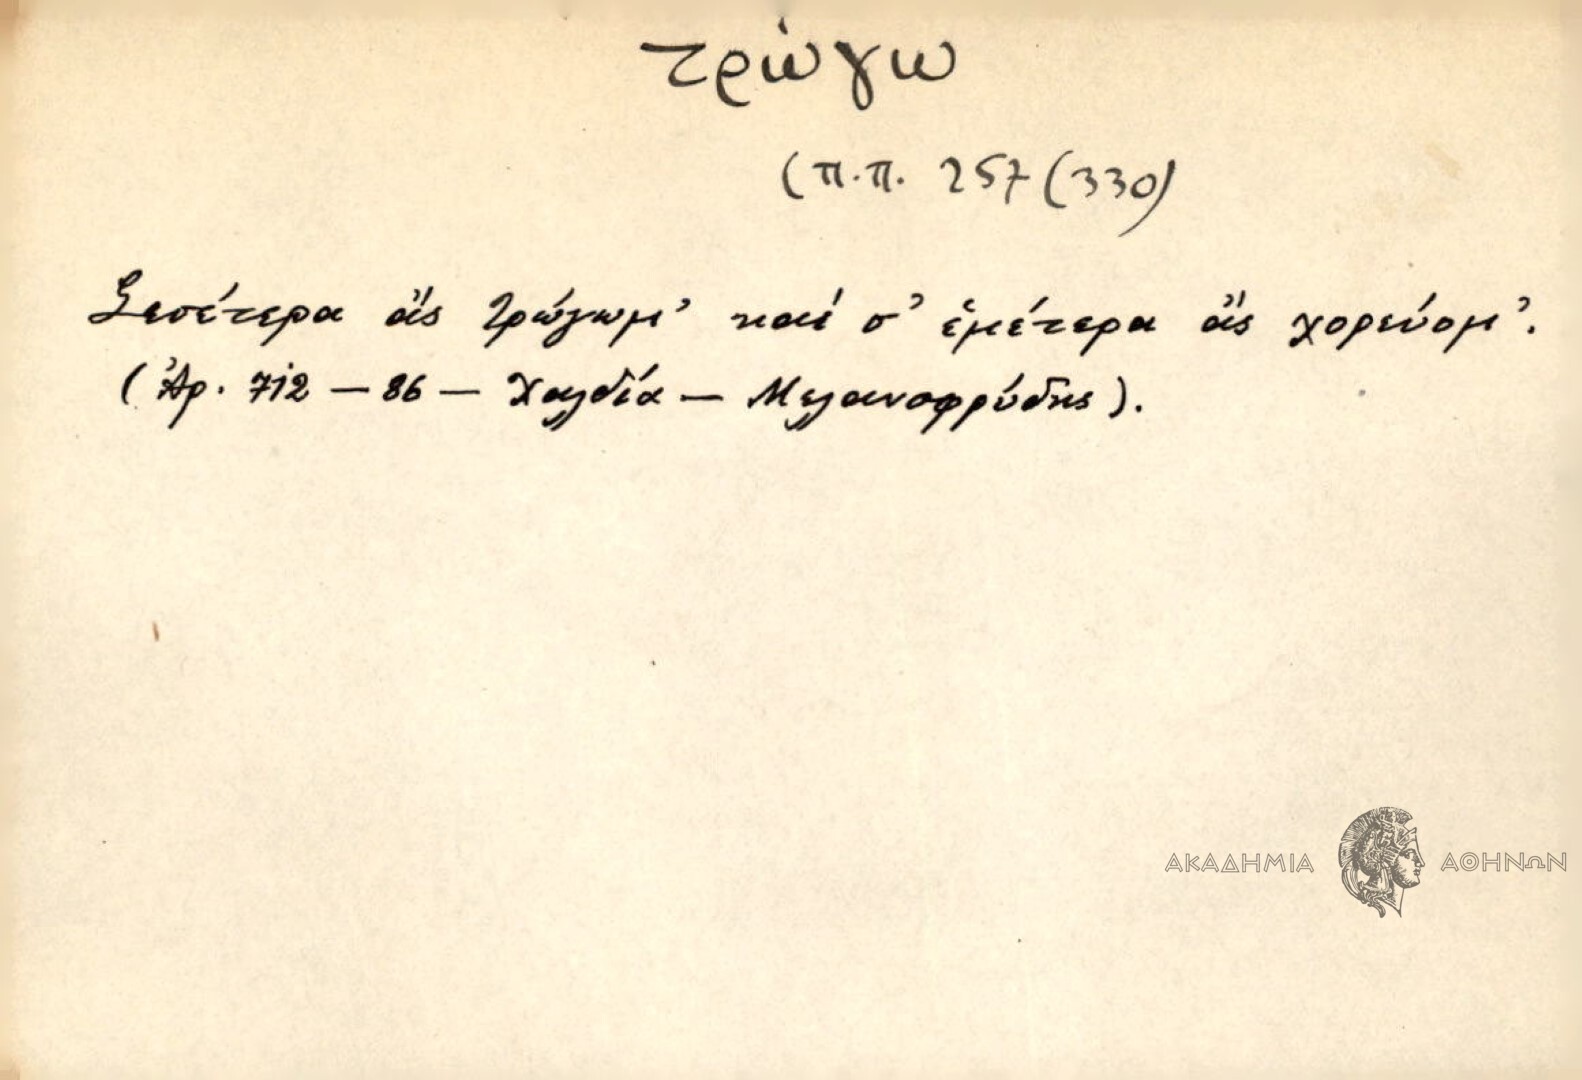 τρώγω
(π.π. 257 (330)
Σεσέτερα ἄς τρώγωμ' καί σ' ἐμέτερα ἄς χορεύομ'.
(Ἀρ. 712 – 86 – Χαλδία – Μελανοφρύδης).
ΑΚΑΔΗΜΙΑ ΑΘΗΝΩΝ